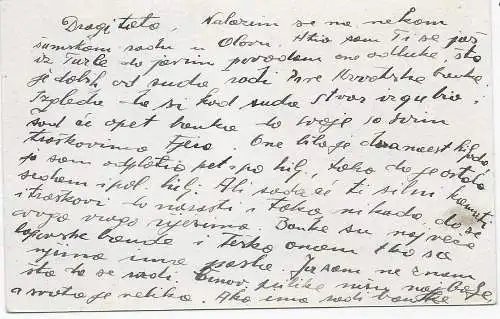 Dragi tata, Nalazim se na nekom
šumskom radu u Olovu. Htio sam Ti se još
iz Tuzle da javim povodom one odluke, što
je dobih od suda radi Prve Hrvatske banke.
Izgleda da si kod suda stvar izgubio.
Sad će opet banka to svoje sa svim
troškovima tjera. One bilo je dvanaest hilj.
ja sam odplatio pet i po hilj., tako da je ostalo
sedam i pol. hilj. Ali sada će ti silni kamati
i troškovi to narasti i tako nikada da se
ovoga vraga riješimo. Banke su najveće
lopovske bande i teško onom tko sa
njima ima posla. Ja sam ne znam
šta da se radi. prilike nisu najbolje
a svota je velika. Ako ima radi banke